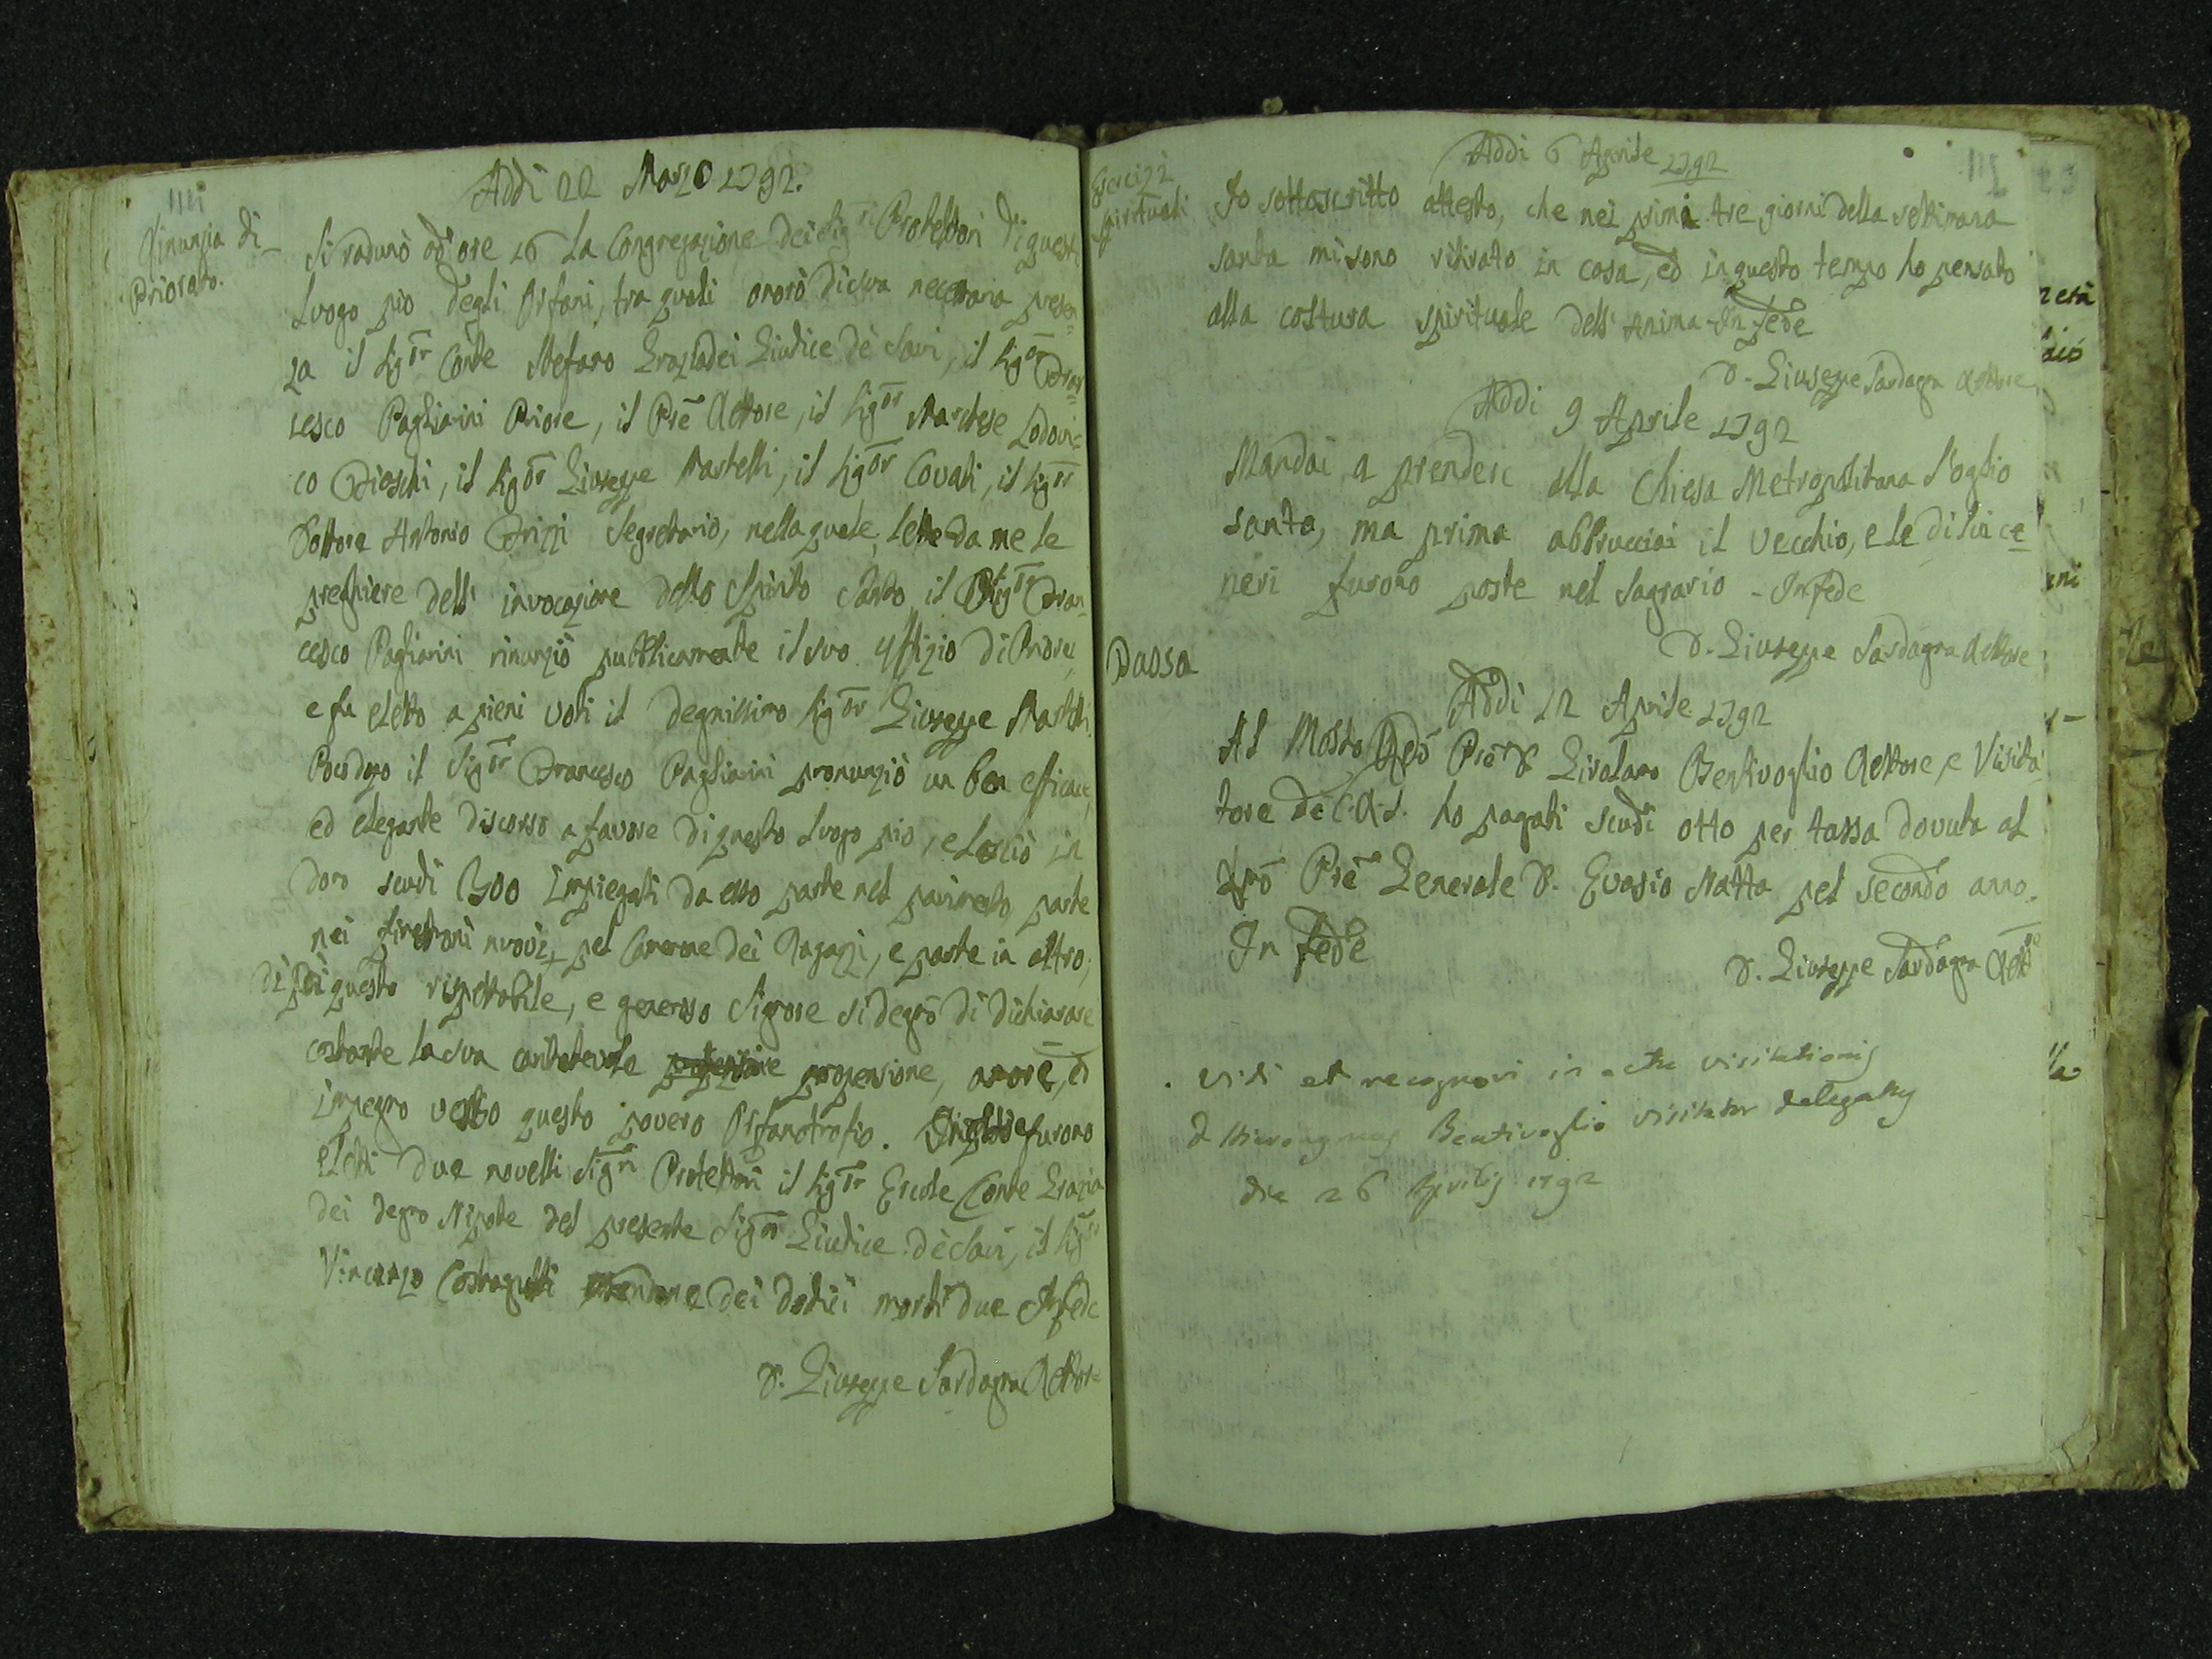 Addi 22 Marzo 1792.
Rinunzia di
Priorato.
Si radunò ad ore 16 la Congregazione dei Sigri Protettori di questo
Luogo pio degli Orfani, tra quali onorò di sua necessaria presen=
za il Sigor Conte Stefano Graziadei Giudice dè Savi, il Sigor Fran=
cesco Pagliarini Priore, il Pre Rettore, il Sigor Marchese Lodovi=
co Fieschi, il Sigor Giuseppe Martelli, il Sigor Covati, il Sigor
Dottore Antonio Frizzi Segretario, nella quale, lette da me le
preghiere dell' invocazione dello Spirito Santo il Sigor Fran=
cesco Pagliarini rinunziò pubblicamente il suo Uffizio di Priore,
e fu eletto a pieni voti il degnissimo Sigor Giuseppe Martelli.
Poco dopo il Sigor Francesco Pagliarini pronunziò un ben efficace,
ed elegante discorso a favore di questo Luogo pio, e lasciò in
dono scudi 300 impiegati da esso parte nel pavimento, parte
nei finestroni nuovi, pel Camerone dei Ragazzi, e parte in altro;
di più questo rispettabile, e generoso Signore si degnò di dichiarare
costante la sua caritatevole propensione, amore, ed
impegno verso questo povero Orfanotrofio. furono
eletti due novelli Sigri Protettori il Sigor Ercole Conte Grazia
dei degno Nipote del presente Sigor Giudice dè Savi, il Sigor
Vincenzo dei dodici morti due In fede
D. Giuseppe Sardagna Rettore
Addi 6 Aprile 1792
Esercizi
spirituali
Io sottoscritto attesto, che nei primi tre giorni della settimana
santa mi sono ritirato in casa, ed in questo tempo ho pensato
alla coltura spirituale dell' Anima - In fede
D. Giuseppe Sardagna Rettore
Addi 9 Aprile 1792
Mandai a prendere alla Chiesa Metropolitana l'oglio
santo, ma prima abbrucciai il vecchio, e le di lui ce=
neri furono poste nel Sagrario - In fede
D. Giuseppe Sardagna Rettore
Tassa
Addi 12 Aprile 1792
Al Molto Rdo Pre D. Girolamo Bentivoglio Rettore, e Visita=
tore ho pagati scudi otto per tassa dovuta al
Pre Generale D. Evasio Natta pel secondo anno.
In fede
D. Giuseppe Sardagna Rett
Vidi et recognovi in actu visitationis
D Hieronymus Bentivoglio visitator delegatus
die 26 Aprilis 1792